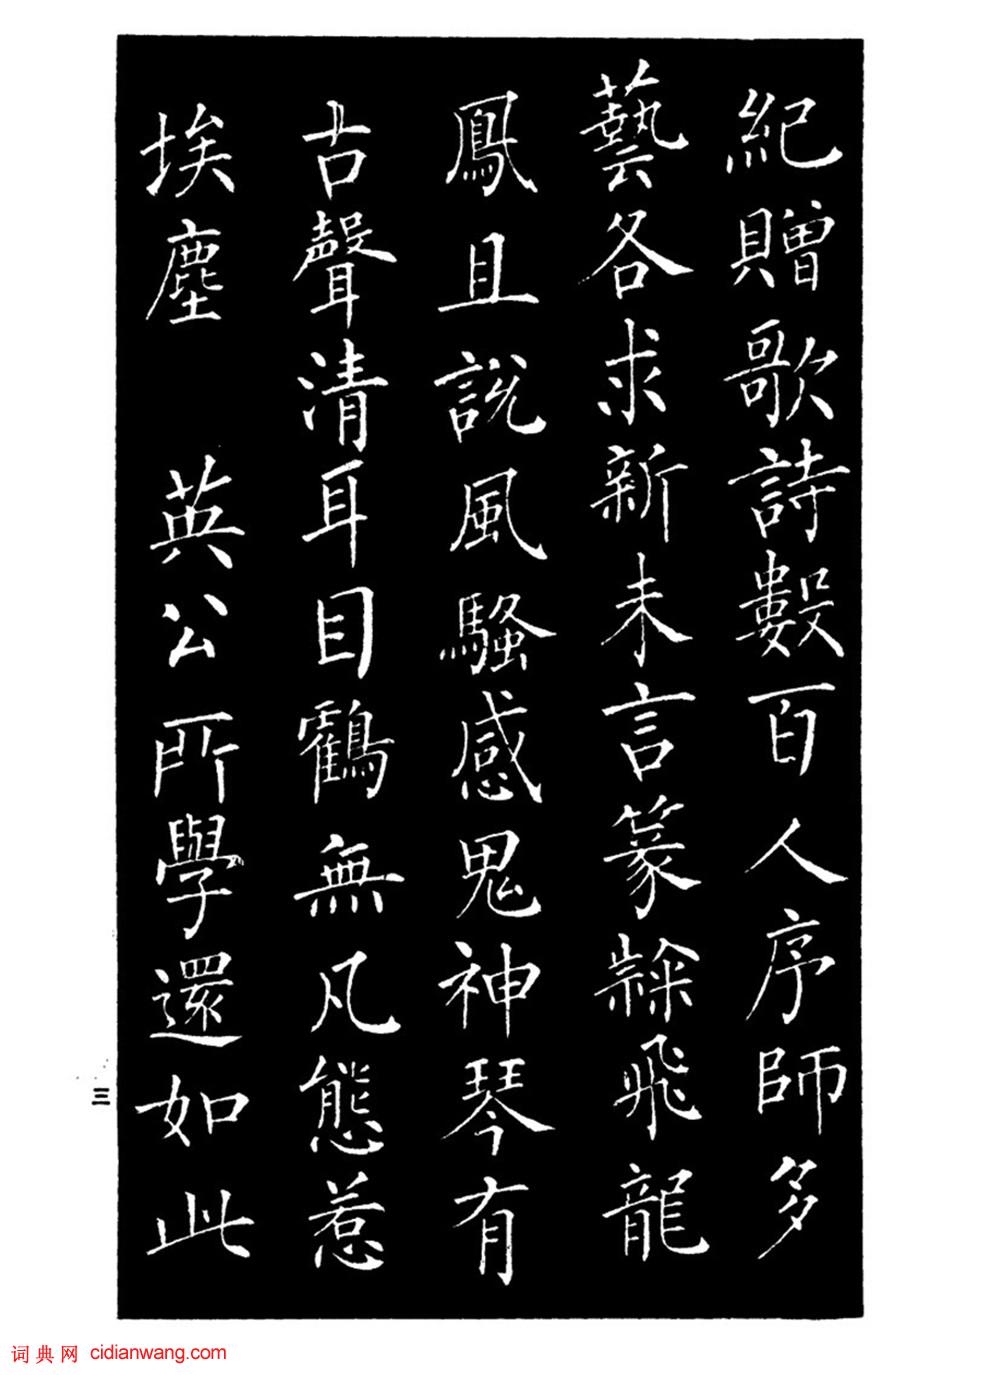 紀贈歌詩數百人序師多
藝各求新未言篆隸飛龍
鳳且說風騷感鬼神琴有
古聲清耳目鶴無凡態惹
埃塵 英公所學還如此
三
词典网 cidianwang.com